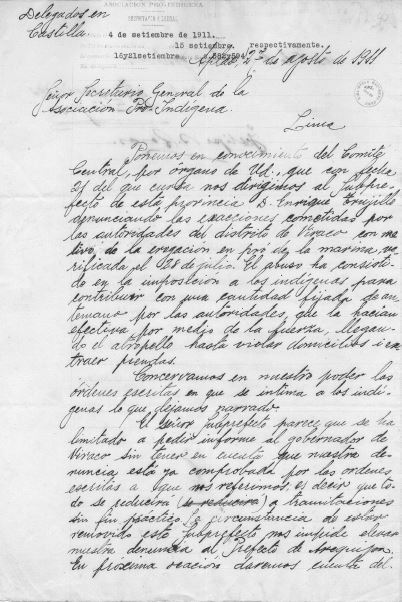 ASOCIACIÓN PRO-INDÍGENA
Delegados en
SECRETARIA GENERAL
Castilla
4 de setiembre de 1911.
15 setiembre, respectivamente.
15y21setiembre 582y594
Aplao, 27 de agosto de 1911
Señor Secretario General de la
Asociación Pro-Indígena.
Lima
Ponemos en conocimiento del Comité
Central, por órgano de Ud., que con fecha
21 del que cursa nos dirigimos al Subpre-
fecto de esta provincia D. Enrique Trujillo
denunciando las exacciones cometidas por
las autoridades del distrito de Viraco con mo-
tivo de la erogación en pro de la marina ve-
rificada el 28 de julio. El abuso ha consisti-
do en la imposición a los indígenas para
contribuir con una cantidad fijada de an-
temano por las autoridades, que la hacían
efectiva por medio de la fuerza, llegan-
do el atropello hasta violar domicilios i ex-
traer prendas.
Concervamos en nuestro poder las
órdenes escritas en que se intima a los indí-
genas lo que dejamos narrado.
El señor Subprefecto parece que se ha
limitado a pedir informe al gobernador de
Viraco sin tener en cuenta que nuestra de-
nuncia está ya comprobada por las ordenes
escritas a que nos referimos; es decir que to-
do se reducirá (se reducira) a tramitaciones
sin fin práctico. La circunstancia de estar
removido este Subprefecto nos impide elevar
nuestra denuncia al Prefecto de Arequipa.
En próxima ocasión daremos cuenta del